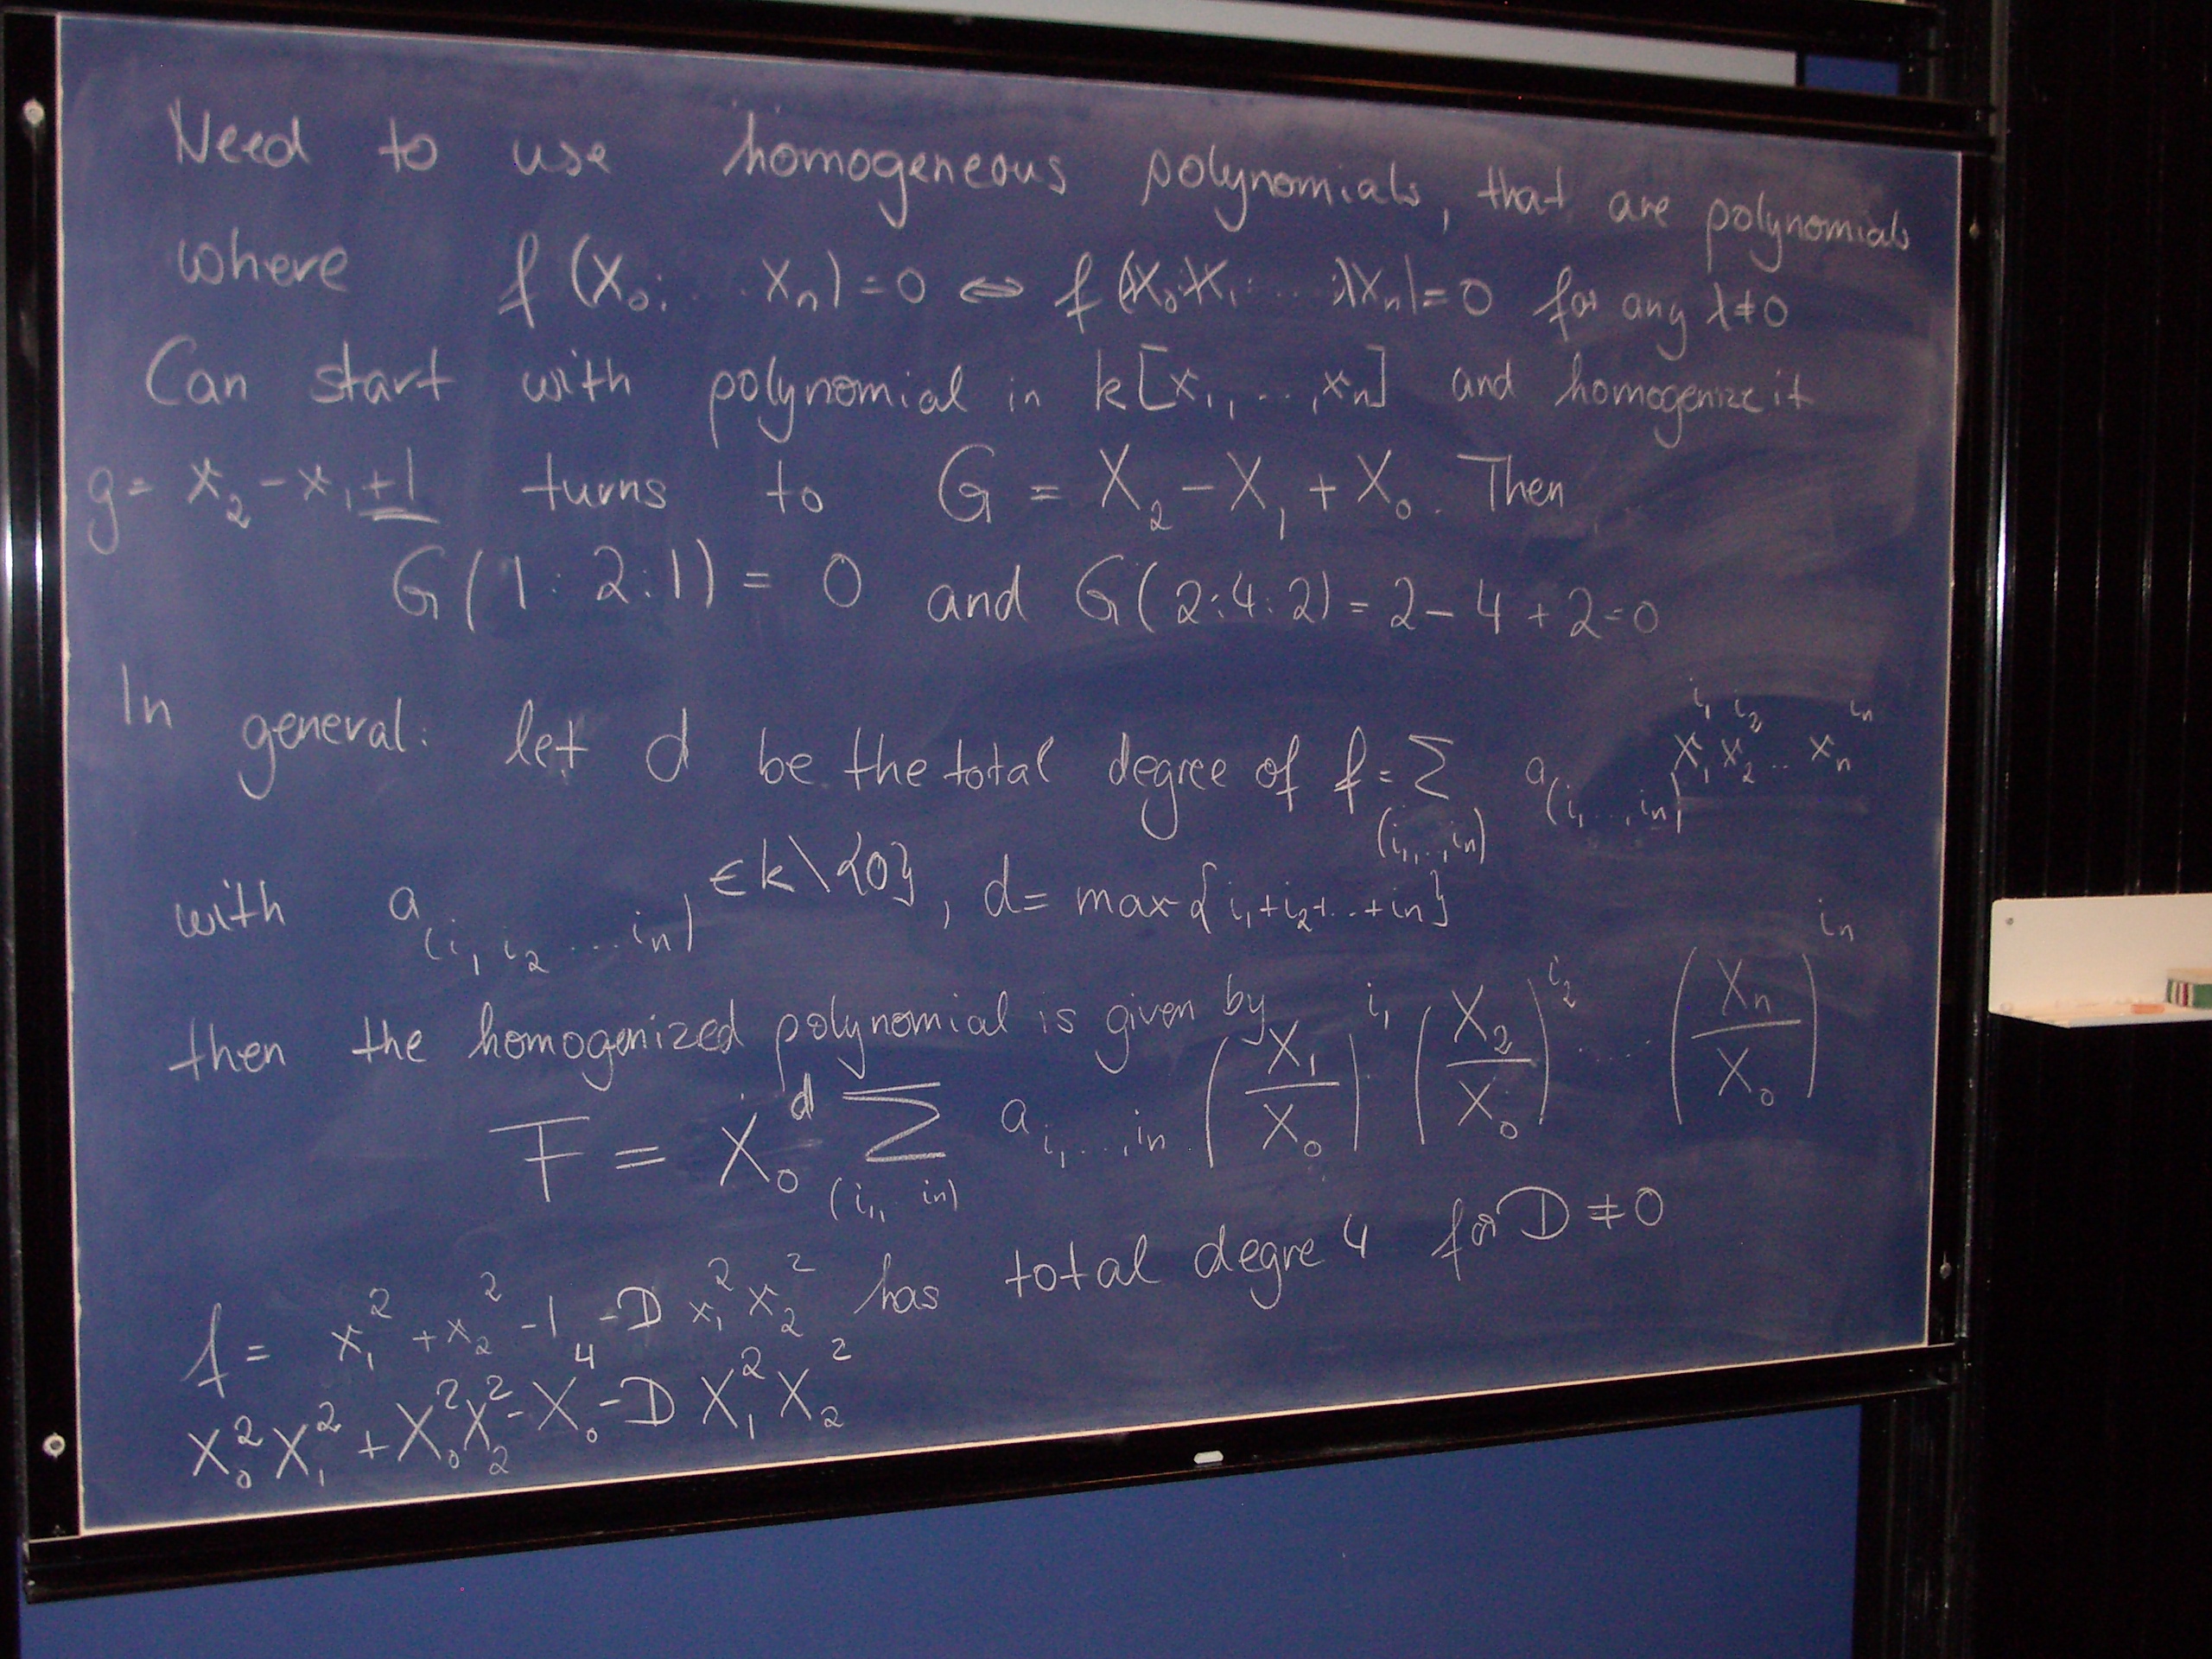 Need to use homogeneous polynomials, that are polynomials
where f(X₀: ... Xₙ)=0 ⇔ f(λX₀:λX₁: ... :λXₙ)=0 for any λ≠0
Can start with polynomial in k[x₁, ..., xₙ] and homogenize it
g= x₂ - x₁ +1 turns to G = X₂ - X₁ + X₀. Then
G(1:2:1) = 0 and G(2:4:2) = 2-4+2=0
In general: let d be the total degree of f = Σ_(i₁,...,iₙ) a_(i₁...,iₙ) x₁^i₁ x₂^i₂ ... xₙ^iₙ
with a_(i₁ i₂ ... iₙ) ∈k\{0}, d= max{i₁+i₂+...+iₙ}
then the homogenized polynomial is given by
F = X₀^d Σ_(i₁, ... iₙ) a_i₁...,iₙ (X₁/X₀)^i₁ (X₂/X₀)^i₂ ..... (Xₙ/X₀)^iₙ
f = x₁² + x₂² -1 -D x₁² x₂² has total degre 4 for D≠0
X₀²X₁² + X₀²X₂² - X₀⁴ - D X₁² X₂²